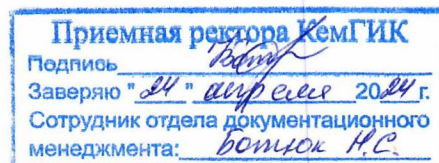 Приемная ректора КемГИК
Подпись
Заверяю "24" апреля 2024 г.
Сотрудник отдела документационного
менеджмента: Ботюк Н.С.